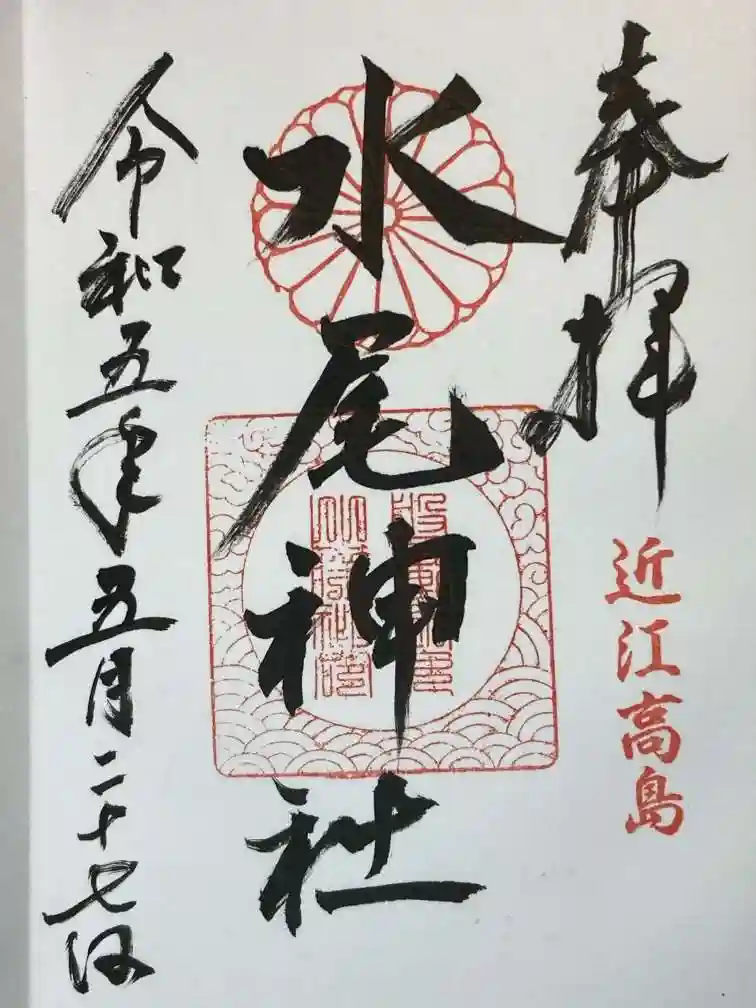 奉拝
近江高島
水尾神社
令和五年五月二十七日